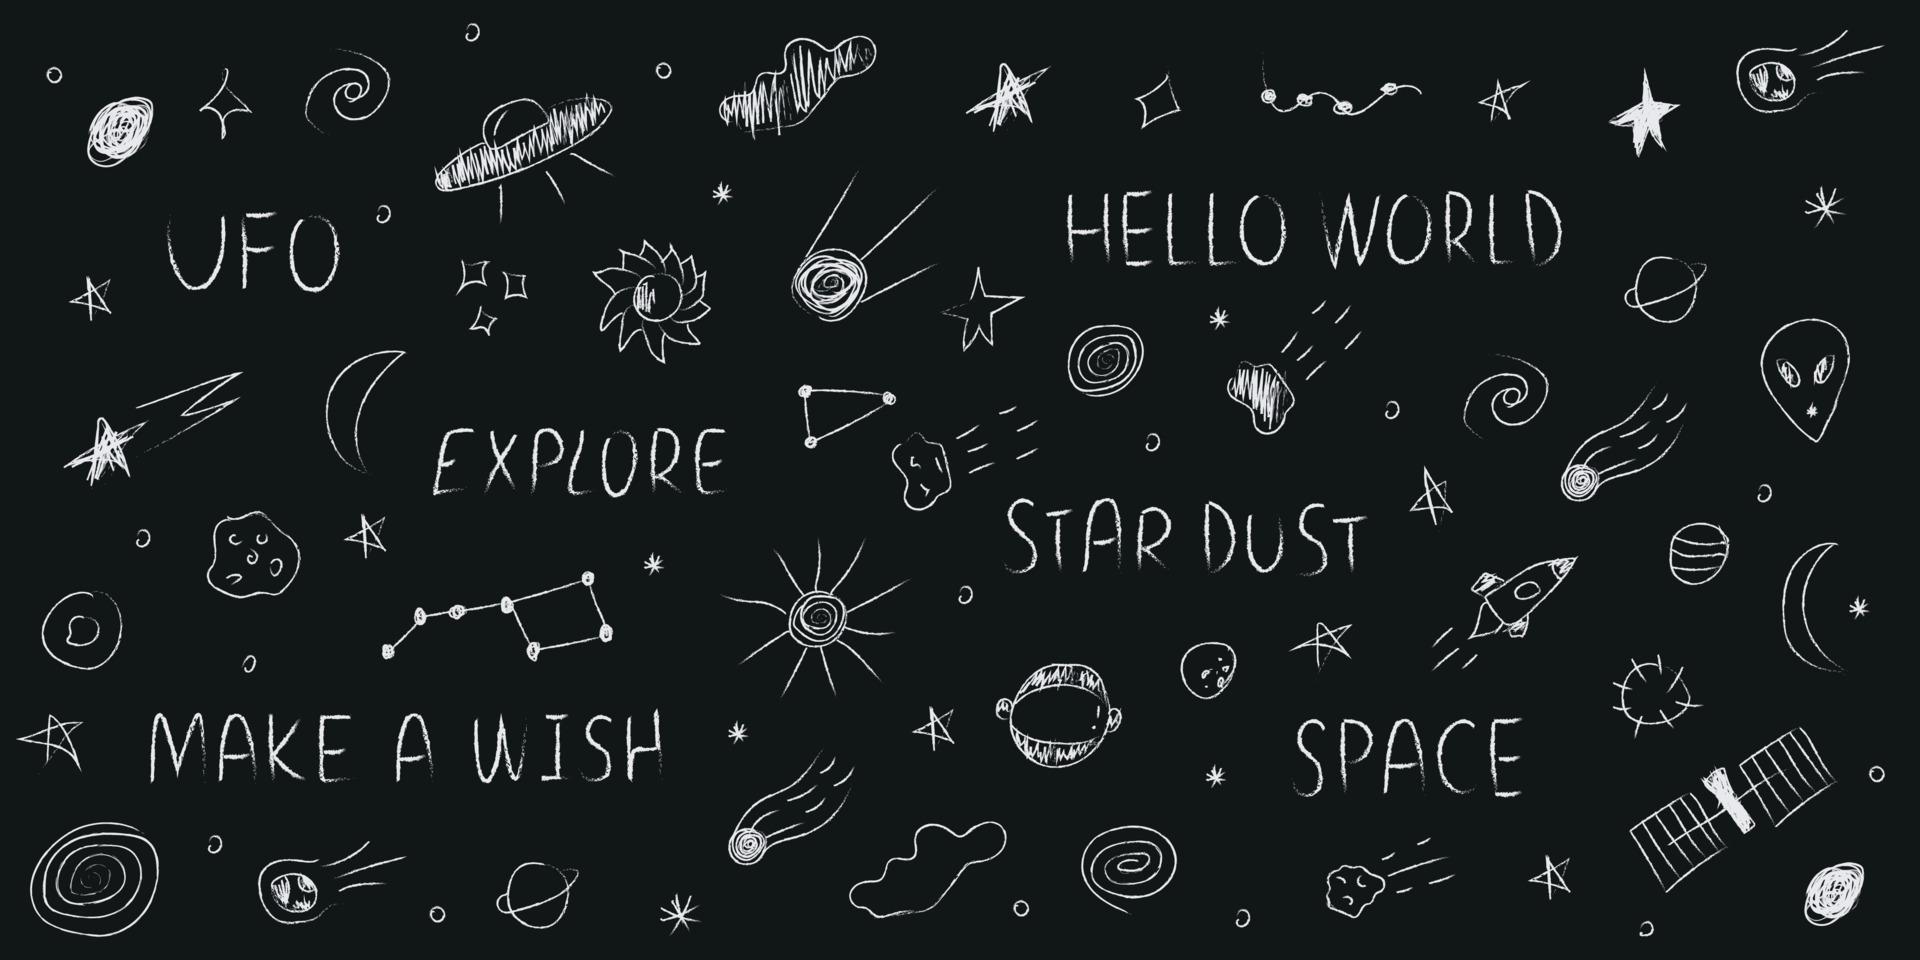 UFO
HELLO WORLD
EXPLORE
STAR DUST
MAKE A WISH
SPACE